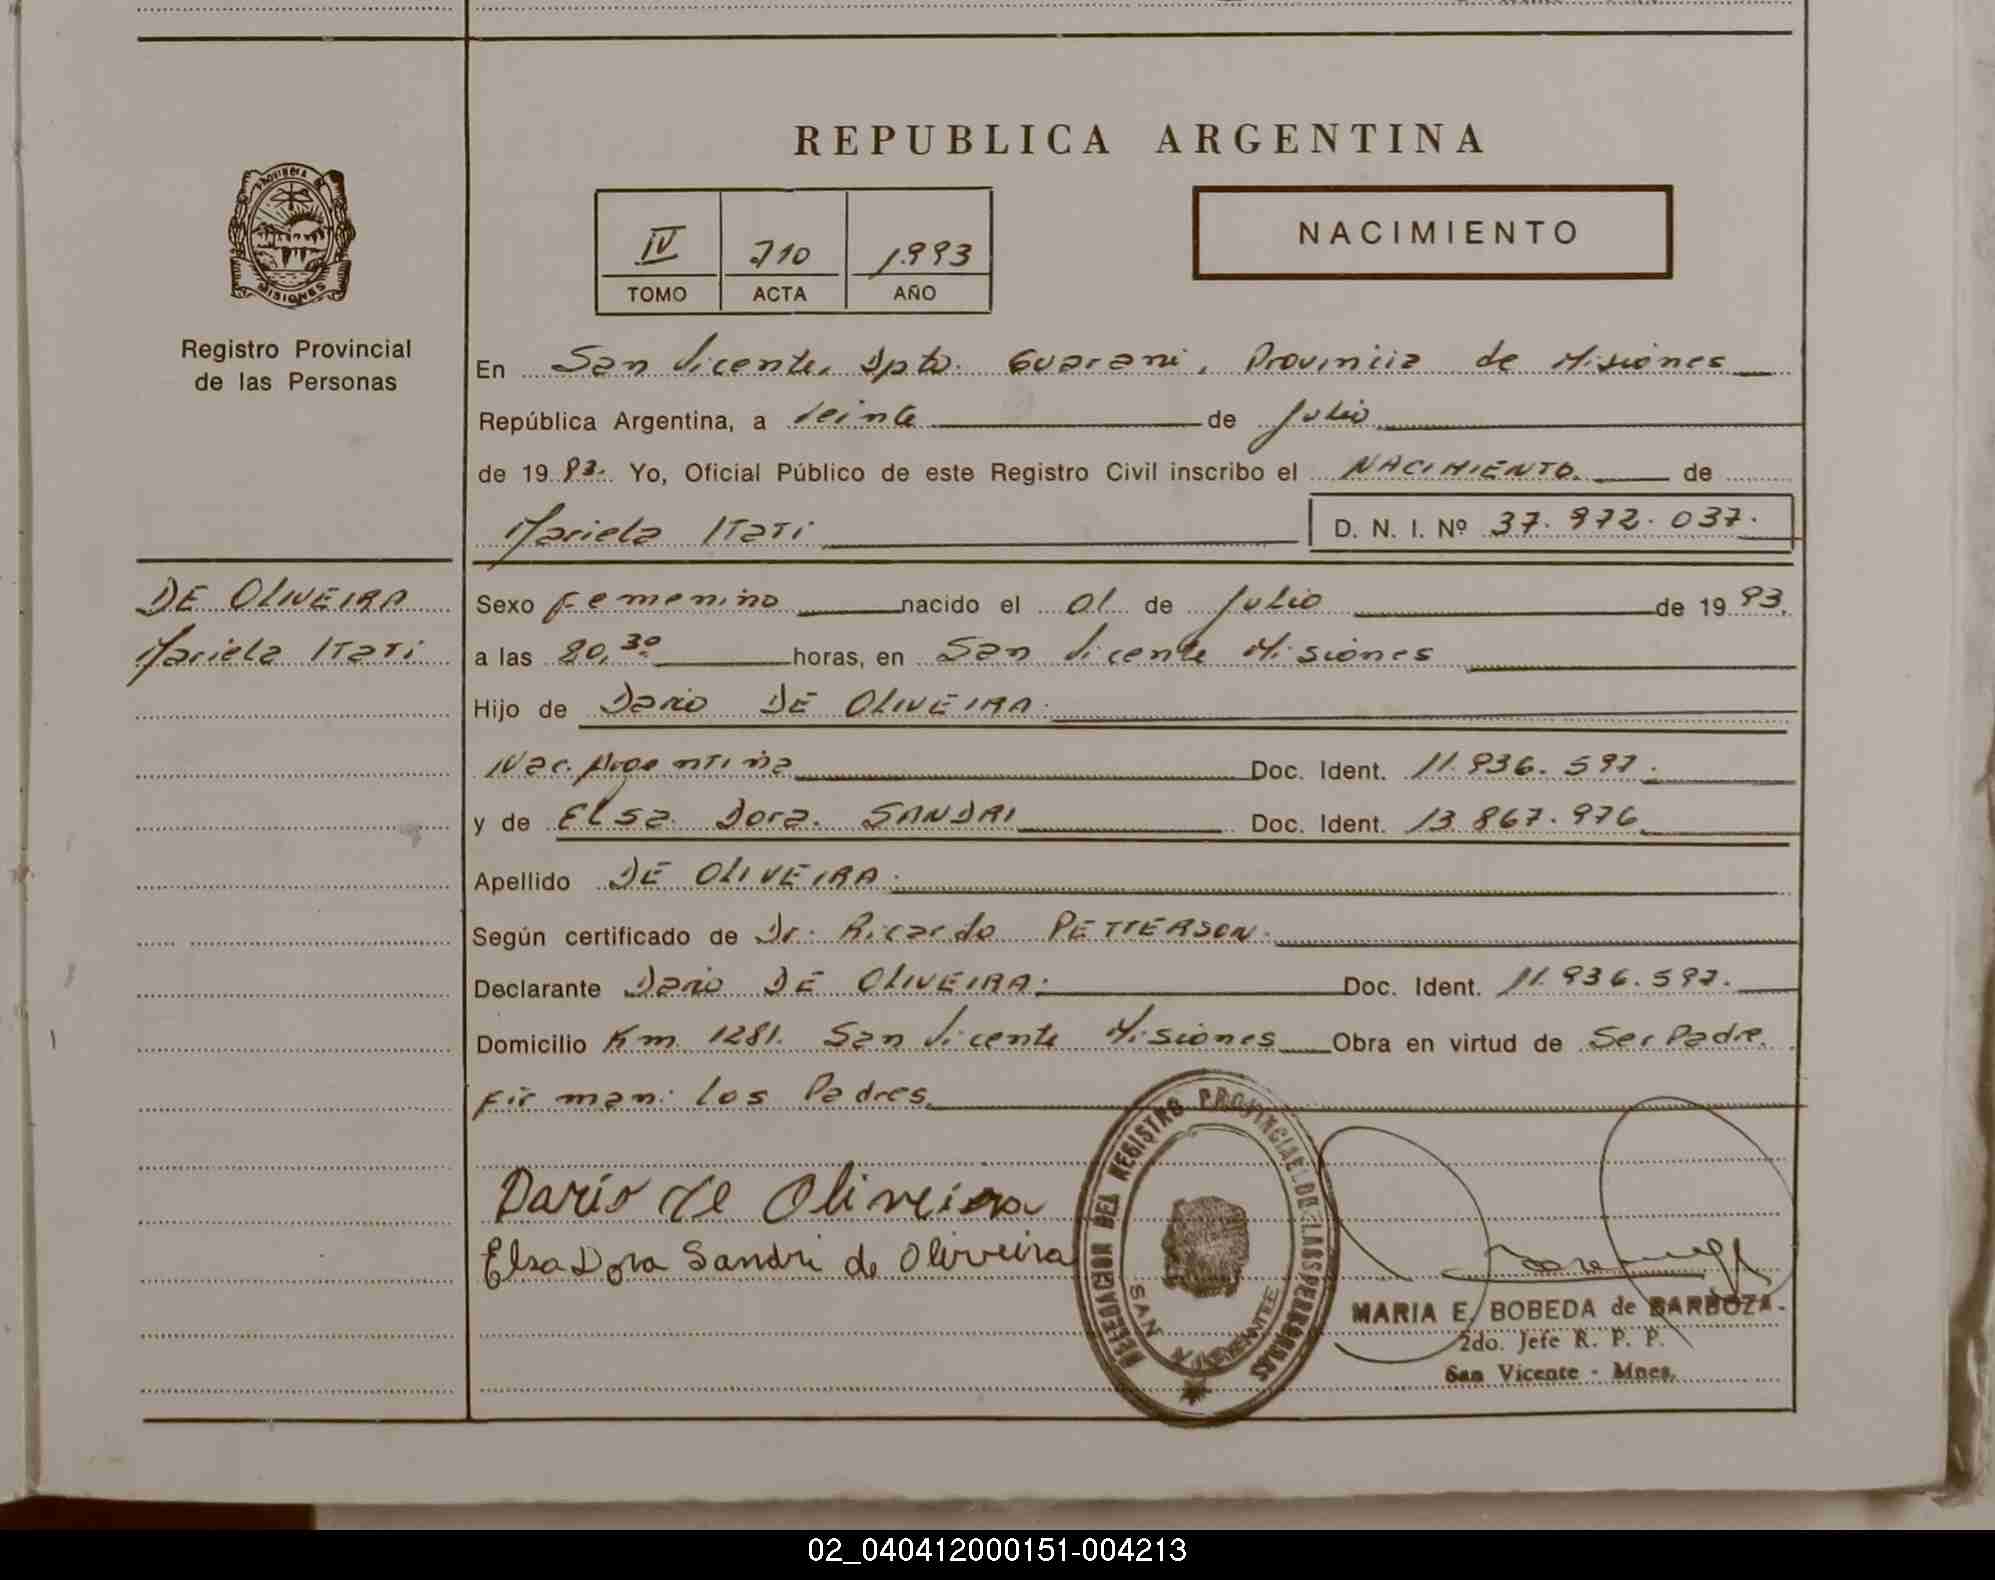 REPUBLICA ARGENTINA
PROVINCIA DE
MISIONES
Registro Provincial
de las Personas
IV 710 1993
TOMO ACTA AÑO
NACIMIENTO
En San Vicente, Dpto. Guarani, Provincia de Misiones
República Argentina, a Veinte de Julio
de 19 93. Yo, Oficial Público de este Registro Civil inscribo el NACIMIENTO. de
Mariela Itati D. N. I. Nº 37.972.037.
DE OLIVEIRA
Mariela Itati
Sexo femenino nacido el 01 de Julio de 19 93.
a las 20,30 horas, en San Vicente Misiones
Hijo de Dario DE OLIVEIRA.
Nac. Argentina Doc. Ident. 11.936.597.
y de Elsa Dora SANDRI Doc. Ident. 13.867.976
Apellido DE OLIVEIRA.
Según certificado de Dr. Ricardo PETTERSON.
Declarante Dario DE OLIVEIRA. Doc. Ident. 11.936.597.
Domicilio Km. 1281. San Vicente Misiones Obra en virtud de Ser Padre.
Firman: los Padres.
Darío de Oliveira
Elsa Dora Sandri de Oliveira
DELEGACION DEL REGISTRO PROVINCIAL DE LAS PERSONAS
SAN VICENTE
MARIA E. BOBEDA de BARBOZA.
2do. Jefe R. P. P.
San Vicente - Mnes.
02_040412000151-004213